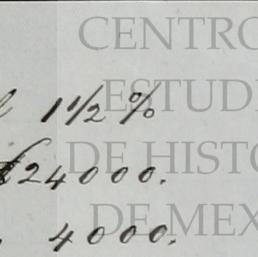 CENTRO
ESTUDI
l 1 1/2 %
DE HISTO
$24000.
DE MEX
4000.